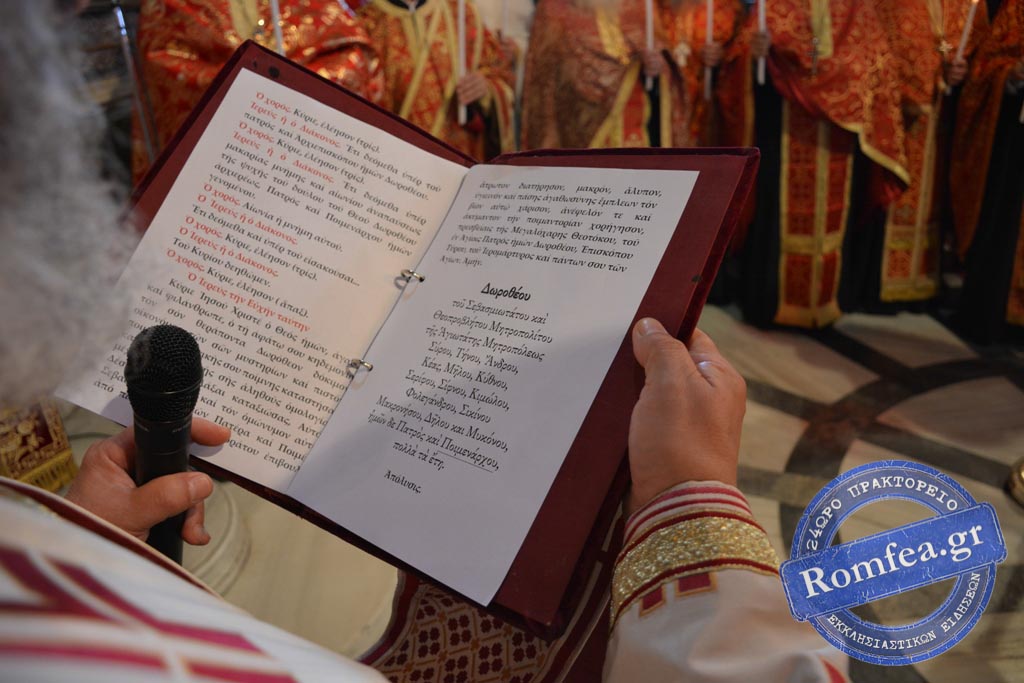 Ὁ χορός. Κύριε, ἐλέησον (τρίς).
Ἱερεὺς ἢ ὁ Διάκονος. Ἔτι δεόμεθα ὑπὲρ τοῦ
πατρὸς καὶ Ἀρχιεπισκόπου ἡμῶν Δωροθέου.
Ὁ χορός. Κύριε, ἐλέησον (τρίς).
Ἱερεὺς ἢ ὁ Διάκονος. Ἔτι δεόμεθα ὑπὲρ
μακαρίας μνήμης καὶ αἰωνίου ἀναπαύσεως
τῆς ψυχῆς τοῦ δούλου τοῦ Θεοῦ Δωροθέου
ἀρχιερέως, Πατρὸς καὶ Ποιμενάρχου ἡμῶν
γενομένου.
Ὁ χορός. Αἰωνία ἡ μνήμη αὐτοῦ.
Ὁ Ἱερεὺς ἢ ὁ Διάκονος.
Ἔτι δεόμεθα καὶ ὑπὲρ τοῦ εἰσακοῦσαι...
Ὁ χορός. Κύριε, ἐλέησον (τρίς).
Ὁ Ἱερεὺς ἢ ὁ Διάκονος.
Τοῦ Κυρίου δεηθῶμεν.
Ὁ χορός. Κύριε, ἐλέησον (ἅπαξ).
Ὁ Ἱερεὺς τὴν Εὐχὴν ταύτην
Κύριε Ἰησοῦ Χριστὲ ὁ Θεὸς ἡμῶν,
καὶ φιλάνθρωπε, ὁ τῇ ἀφάτῳ σου κηδεμονίᾳ
τὸν σὸν θεράποντα Δωρόθεον
τῶν σῶν μυστηρίων καὶ
σῆς ποίμνης
τῆς σῆς ἀληθοῦς ὁμολογίας
καταξιώσας. Αὐτὸς
καὶ τὸν ὁμώνυμον αὐτοῦ
Πατέρα καὶ
ἄτρωτον διατήρησον, μακρόν, ἄλυπον,
ὑγιεινὸν καὶ πάσης ἀγαθωσύνης ἔμπλεων τὸν
βίον αὐτῷ χάρισον, ἀνέφελόν τε καὶ
ἀκύμαντον τὴν ποιμαντορίαν χορήγησον,
πρεσβείαις τῆς Μεγαλόχαρης Θεοτόκου, τοῦ
ἐν Ἁγίοις Πατρὸς ἡμῶν Δωροθέου, Ἐπισκόπου
Τύρου, τοῦ Ἱερομάρτυρος καὶ πάντων σου τῶν
Ἁγίων. Ἀμήν.
Δωροθέου
τοῦ Σεβασμιωτάτου καὶ
Θεοπροβλήτου Μητροπολίτου
τῆς Ἁγιωτάτης Μητροπόλεως
Σύρου, Τήνου, Ἄνδρου,
Κέας, Μήλου, Κύθνου,
Σερίφου, Σίφνου, Κιμώλου,
Φολεγάνδρου, Σικίνου
Μακρονήσου, Δήλου καὶ Μυκόνου,
ἡμῶν δὲ Πατρὸς καὶ Ποιμενάρχου,
πολλὰ τὰ ἔτη.
Ἀπόλυσις.
24ΩΡΟ ΠΡΑΚΤΟΡΕΙΟ
Romfea.gr
ΕΚΚΛΗΣΙΑΣΤΙΚΩΝ ΕΙΔΗΣΕΩΝ